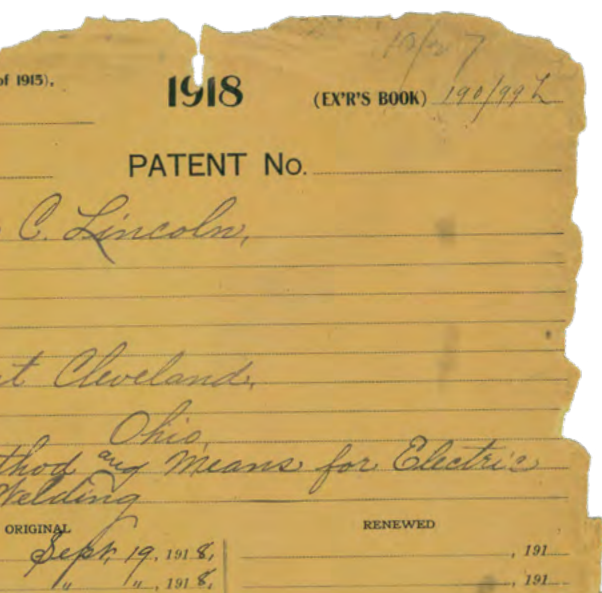 of 1915),
1918
(EX'R'S BOOK) 190/99
PATENT No.
C. Lincoln,
t Cleveland,
Ohio,
thod and Means for Electric
Welding
ORIGINAL
RENEWED
Sept. 19, 1918,
, 191
" ", 1918,
, 191